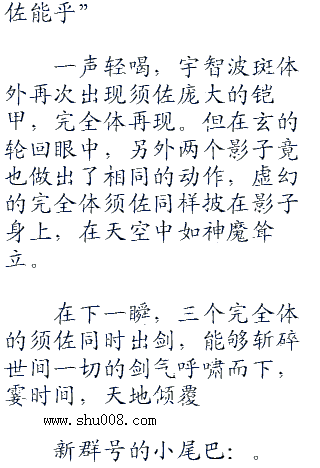 佐能乎”
一声轻喝，宇智波斑体
外再次出现须佐庞大的铠
甲，完全体再现。但在玄的
轮回眼中，另外两个影子竟
也做出了相同的动作，虚幻
的完全体须佐同样披在影子
身上，在天空中如神魔耸
立。
在下一瞬，三个完全体
的须佐同时出剑，能够斩碎
世间一切的剑气呼啸而下，
霎时间，天地倾覆
www.shu008.com
新群号的小尾巴：。